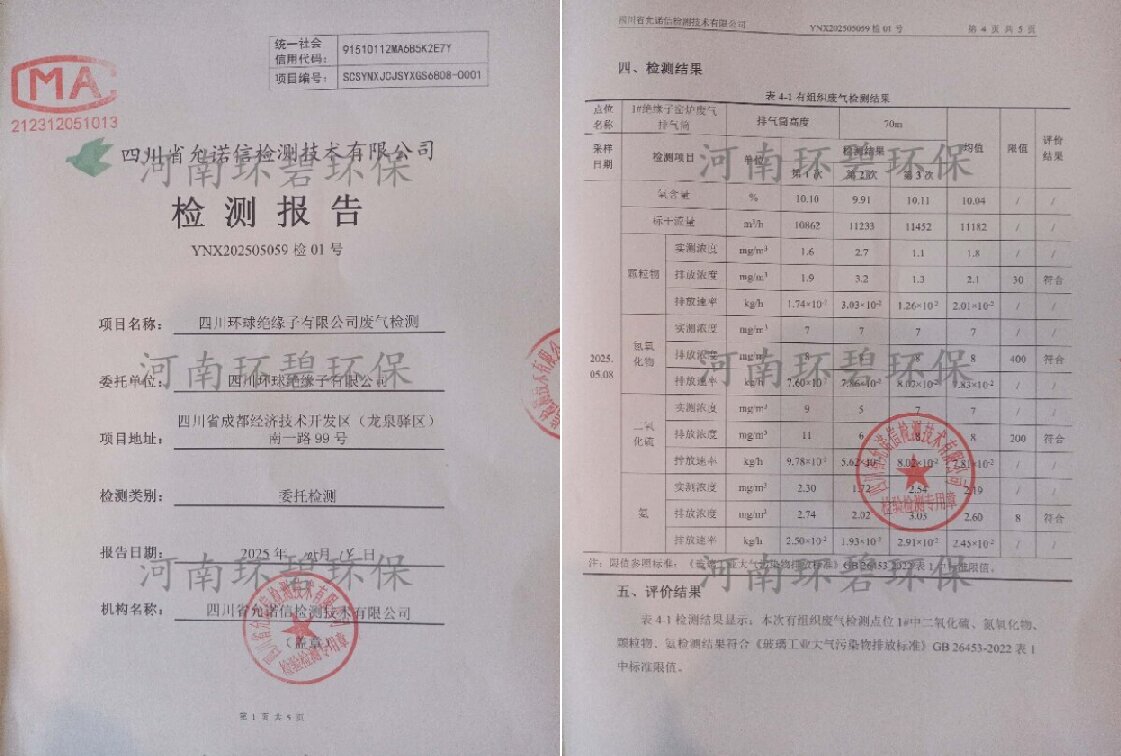 统一社会
信用代码： 91510112MA6B5K2E7Y
项目编号： SCSYNXJCJSYXGS6808-0001
MA
212312051013
四川省允诺信检测技术有限公司
河南环碧环保
检测报告
YNX202505059 检 01 号
项目名称： 四川环球绝缘子有限公司废气检测
河南环碧环保
委托单位： 四川环球绝缘子有限公司
四川省成都经济技术开发区（龙泉驿区）
项目地址： 南一路 99 号
检测类别： 委托检测
报告日期： 2025 年 月 日
河南环碧环保
机构名称： 四川省允诺信检测技术有限公司
（盖章）
四川省允诺信检测技术有限公司
检验检测专用章
第 1 页 共 5 页
四川省允诺信检测技术有限公司 YNX202505059 检 01 号 第 4 页 共 5 页
四、检测结果
表 4-1 有组织废气检测结果
点位名称 1#绝缘子窑炉废气排气筒 排气筒高度 70m
采样日期 检测项目 单位 检测结果 均值 限值 评价结果
河南环碧环保
第 1 次 第 2 次 第 3 次
氧含量 % 10.10 9.91 10.11 10.04 / /
标干流量 m³/h 10862 11233 11452 11182 / /
颗粒物 实测浓度 mg/m³ 1.6 2.7 1.1 1.8 / /
排放浓度 mg/m³ 1.9 3.2 1.3 2.1 30 符合
排放速率 kg/h 1.74×10⁻² 3.03×10⁻² 1.26×10⁻² 2.01×10⁻² / /
2025.05.08
氮氧化物 实测浓度 mg/m³ 7 7 7 7 / /
排放浓度 mg/m³ 8 8 8 8 400 符合
河南环碧环保
排放速率 kg/h 7.60×10⁻² 7.86×10⁻² 8.02×10⁻² 7.83×10⁻² / /
二氧化硫 实测浓度 mg/m³ 9 5 7 7 / /
排放浓度 mg/m³ 11 6 8 8 200 符合
排放速率 kg/h 9.78×10⁻² 5.62×10⁻² 8.02×10⁻² 7.81×10⁻² / /
氨 实测浓度 mg/m³ 2.30 1.72 2.54 2.19 / /
排放浓度 mg/m³ 2.74 2.02 3.03 2.60 8 符合
排放速率 kg/h 2.50×10⁻² 1.93×10⁻² 2.91×10⁻² 2.45×10⁻² / /
四川省允诺信检测技术有限公司
检验检测专用章
注：限值参照标准：《玻璃工业大气污染物排放标准》GB 26453-2022 表 1 中标准限值。
河南环碧环保
五、评价结果
表 4-1 检测结果显示：本次有组织废气检测点位 1#中二氧化硫、氮氧化物、
颗粒物、氨检测结果符合《玻璃工业大气污染物排放标准》GB 26453-2022 表 1
中标准限值。